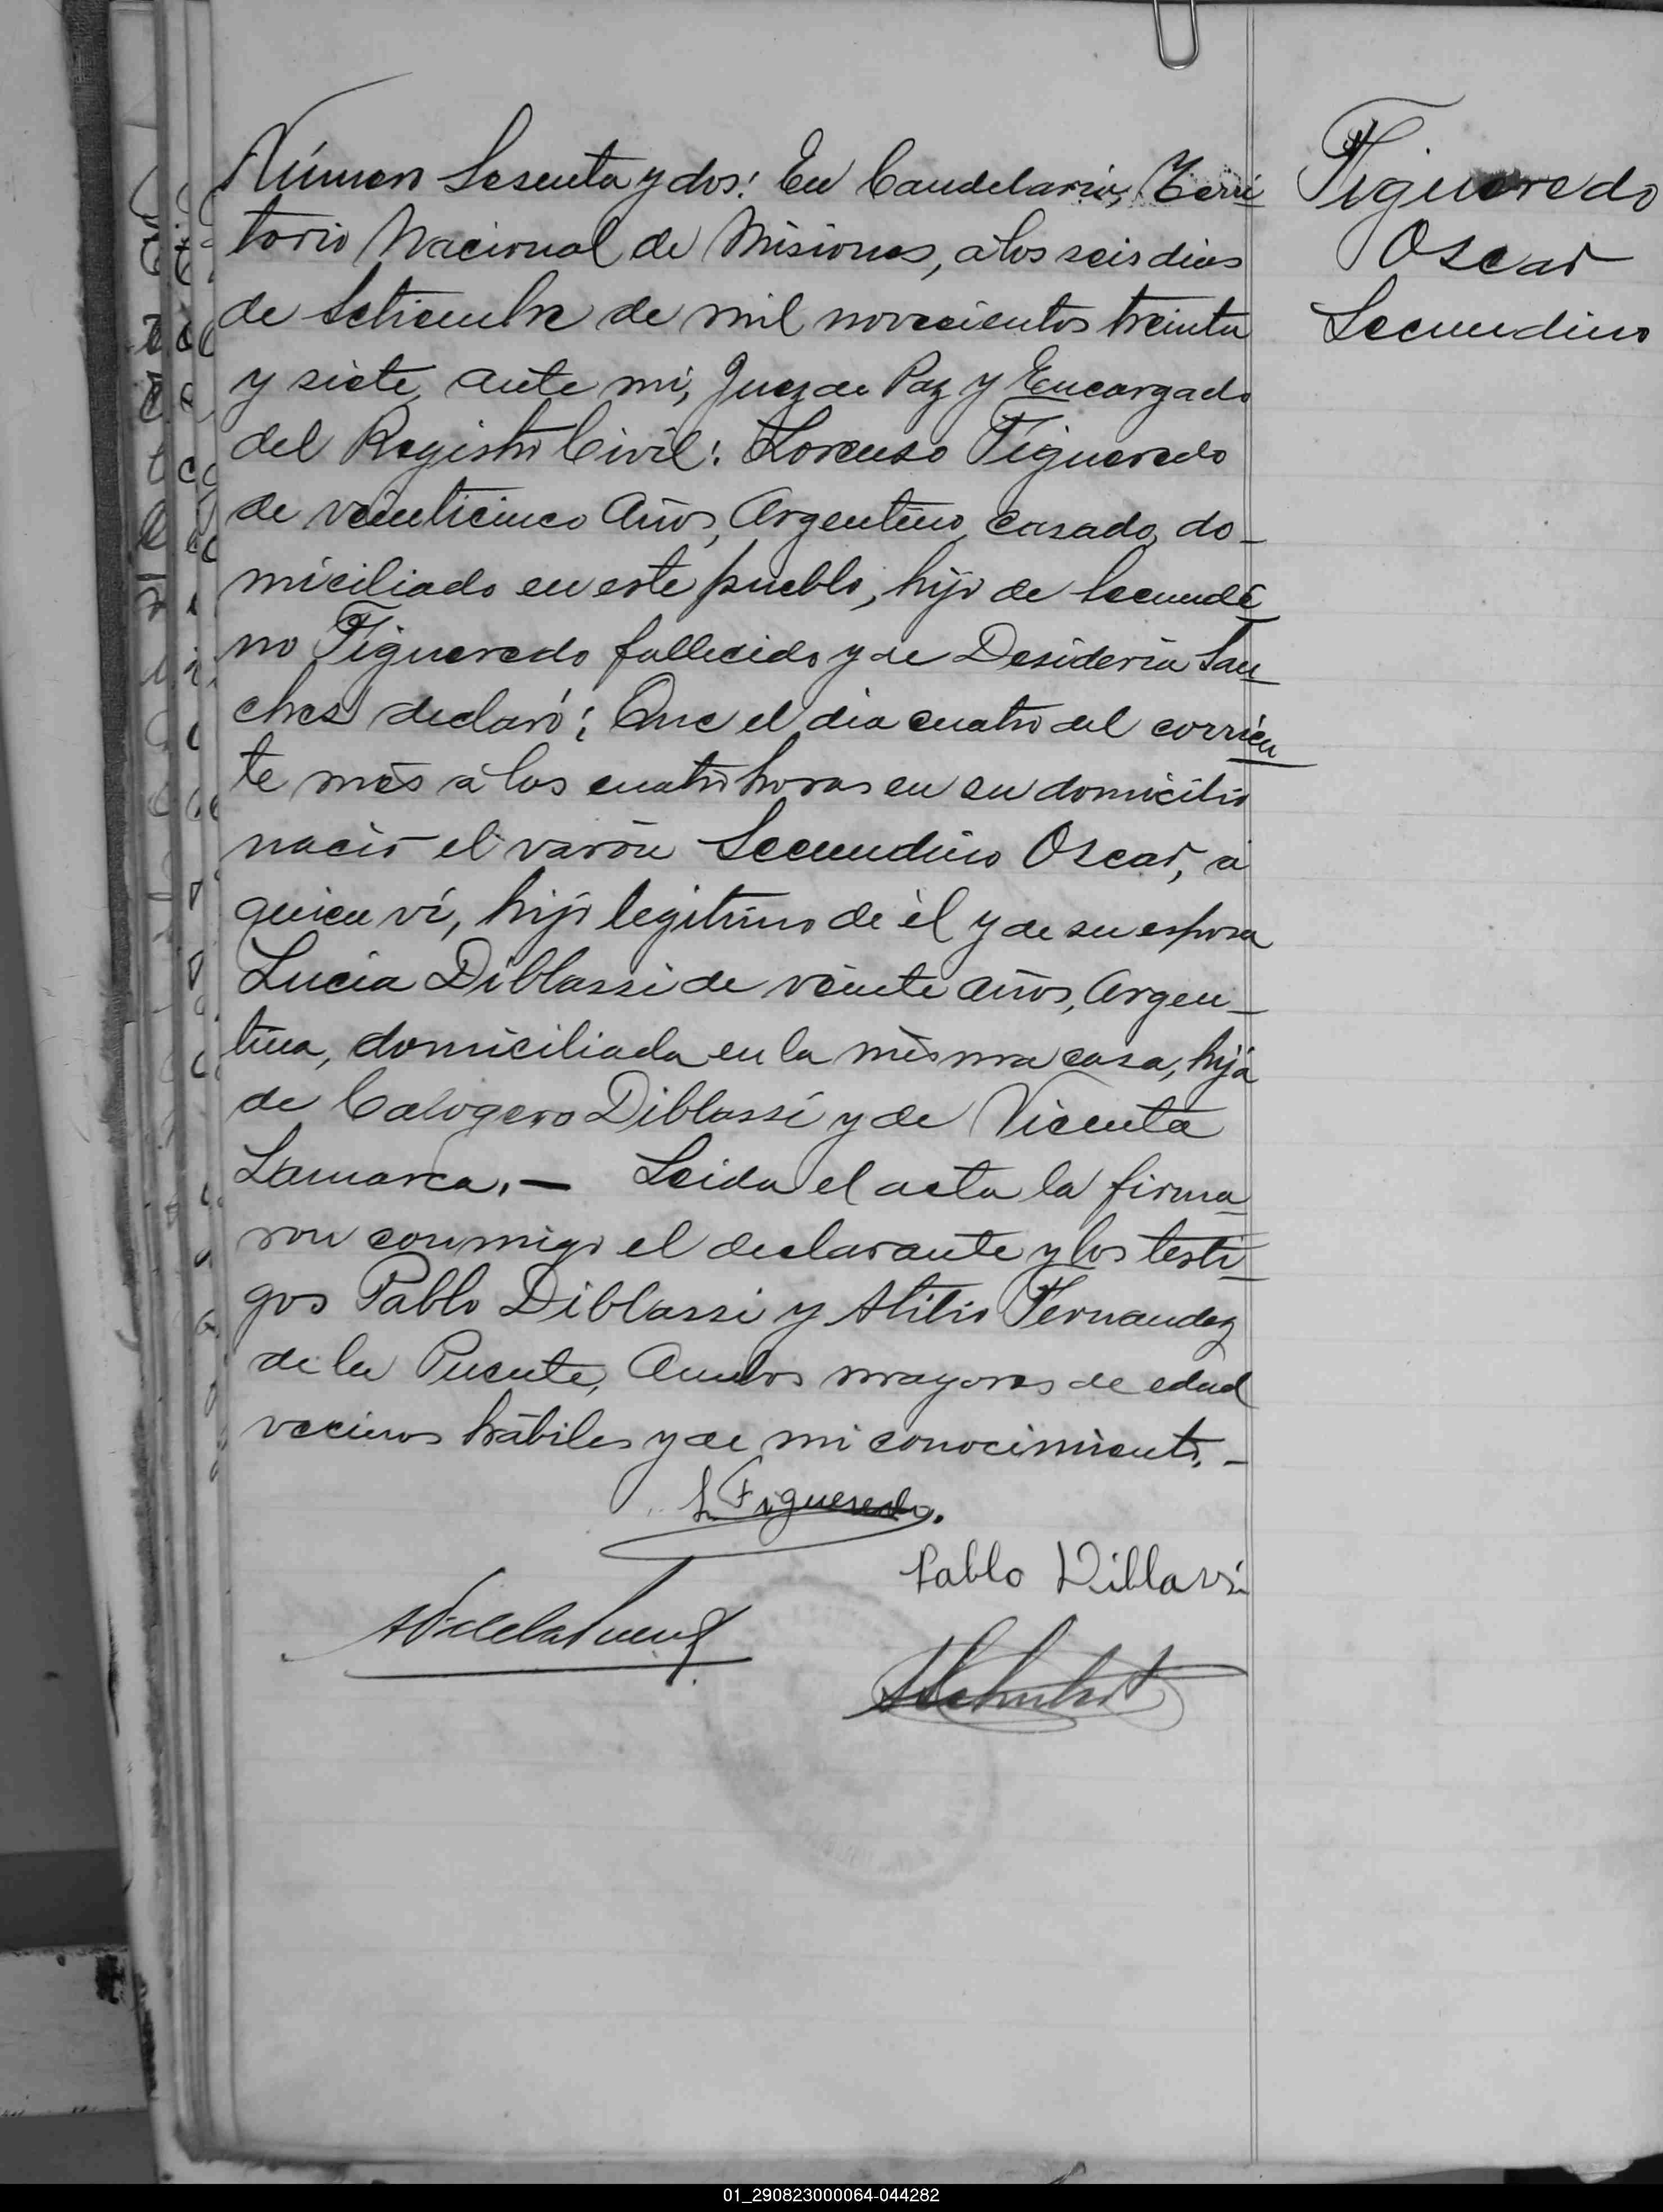 Número Sesenta y dos: En Candelaria, Terri
torio Nacional de Misiones, á los seis dias
de Setiembre de mil novecientos treinta
y siete, ante mi, Juez de Paz y Encargado
del Registro Civil: Lorenso Figueredo
de veinticinco años, Argentino, casado, do-
miciliado en este pueblo, hijo de Secundi
no Figueredo fallecido y de Desideria San
ches declaró: Que el dia cuatro del corrien
te mes á las cuatro horas en su domicilio
nació el varón Secundino Oscar, á
quien ví, hijo legitimo de él y de su esposa
Lucia Diblassi de veinte años, Argen-
tina, domiciliada en la misma casa, hija
de Calogero Diblassi y de Vicenta
Lamarca.— Leida el acta la firma
ron conmigo el declarante y los testi
gos Pablo Diblassi y Atilio Fernandez
de la Puente, ambos mayores de edad
vecinos hábiles y de mi conocimiento.-
L. Figueredo.
Pablo Diblassi
Figueredo
Oscar
Secundino
01_290823000064-044282